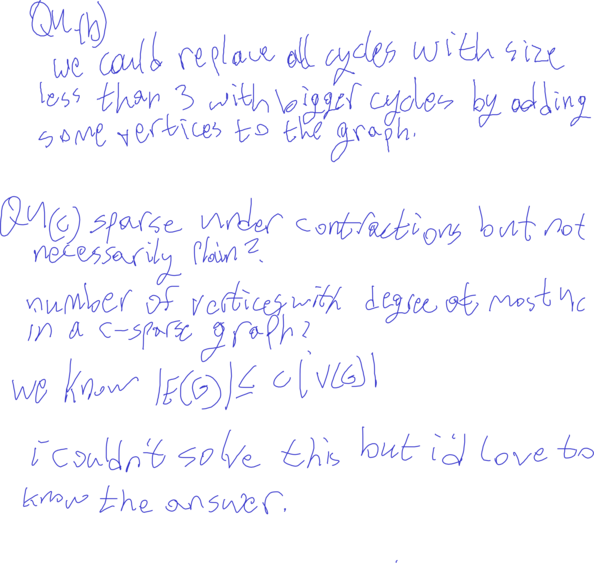 Q4(b)
we could replace all cycles with size
less than 3 with bigger cycles by adding
some vertices to the graph.
Q4(c) sparse under contractions but not
necessarily plain?
number of vertices with degree at most 4c
in a c-sparse graph?
we know |E(G)| ≤ c|V(G)|
i couldn't solve this but i'd love to
know the answer.